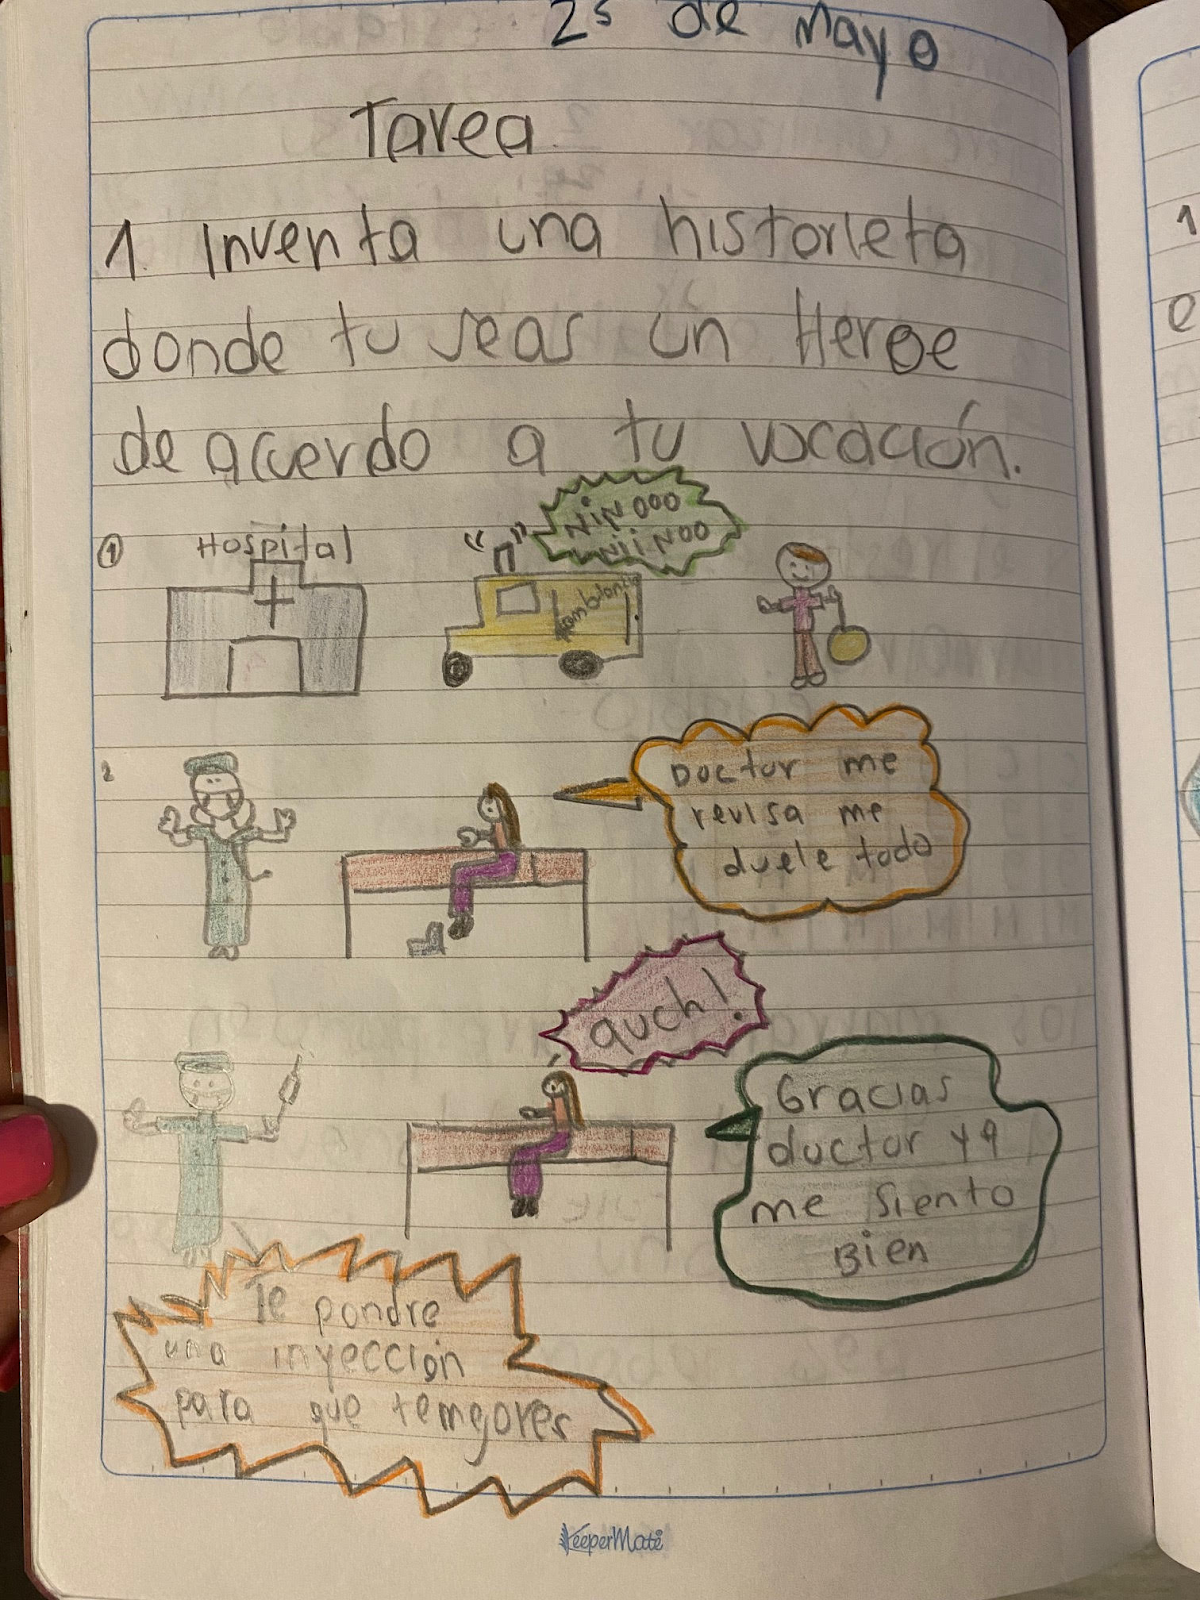 25 de Mayo
Tarea
1. Inventa una historieta
donde tu seas un Heroe
de acuerdo a tu vocación.
1
Hospital
NiNOOO
NiiNOO
Ambulancia
2
Doctor me
revisa me
duele todo
auch!
Gracias
doctor ya
me siento
Bien
Te pondre
una inyección
para que temejores
KeeperMate
1